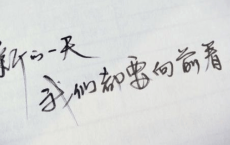 新的一天
我们都要向前看